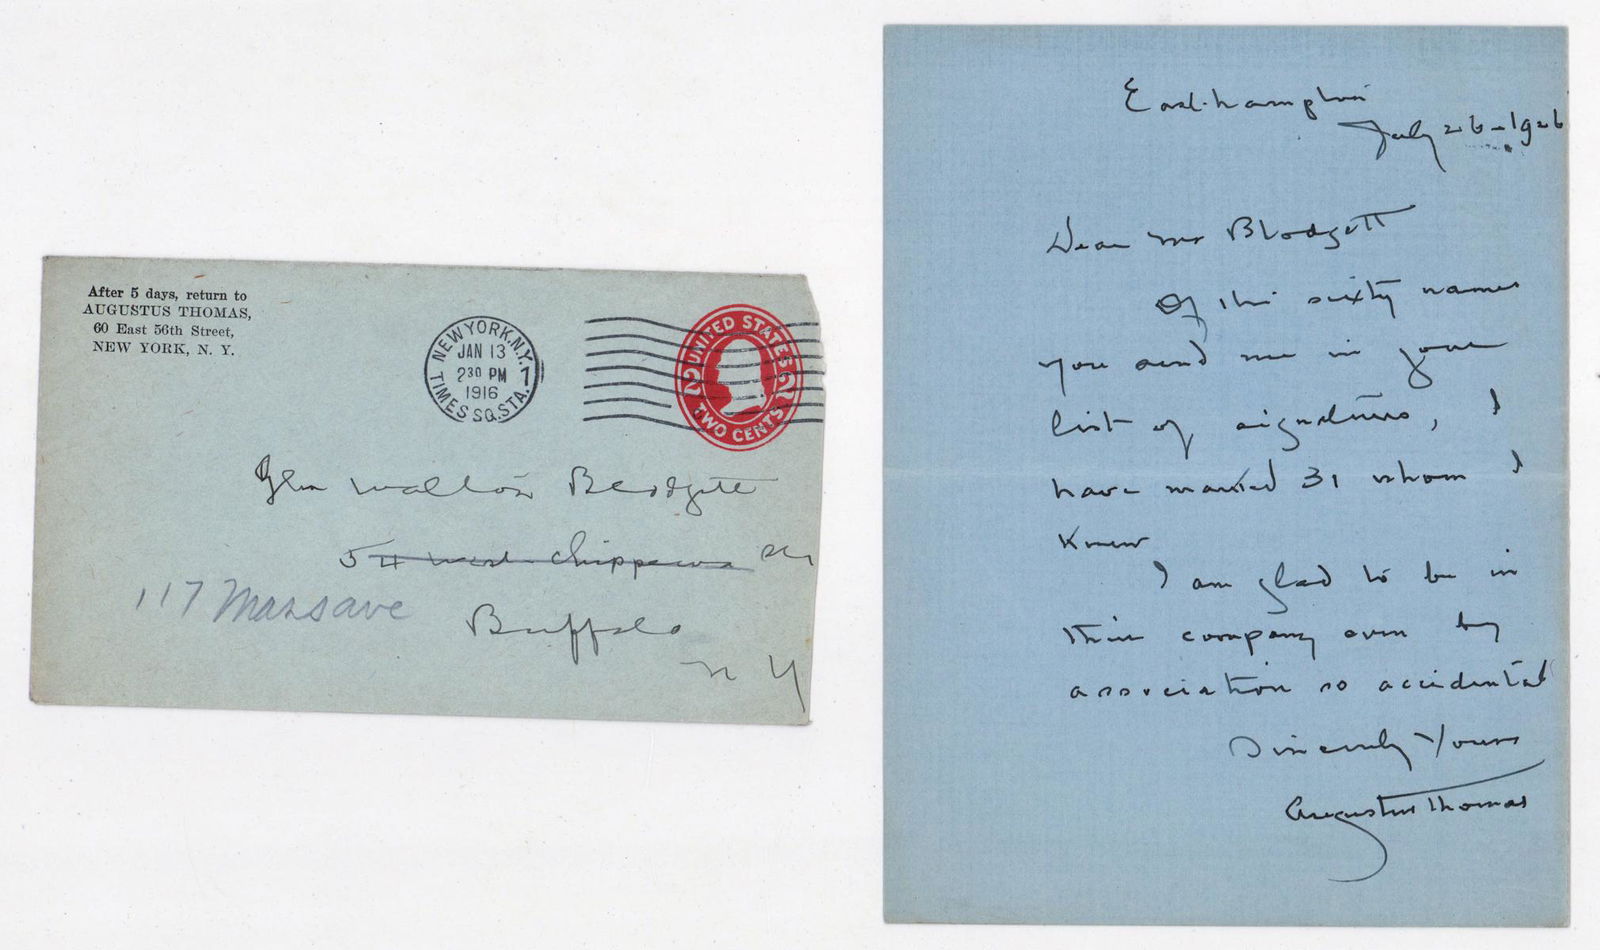 After 5 days, return to
AUGUSTUS THOMAS,
60 East 56th Street,
NEW YORK, N. Y.
NEW YORK, N.Y. 1
JAN 13
230 PM
1916
TIMES SQ. STA.
UNITED STATES
2 2
TWO CENTS
Glen Walton Blodgett
54 West Chippewa St
117 Mass ave
Buffalo
N Y
East-hampton
July 26-1926
Dear Mr Blodgett
Of the sixty names
you send me in your
list of signatures, I
have marked 31 whom I
knew
I am glad to be in
their company even by
association so accidental
Sincerely Yours
Augustus Thomas